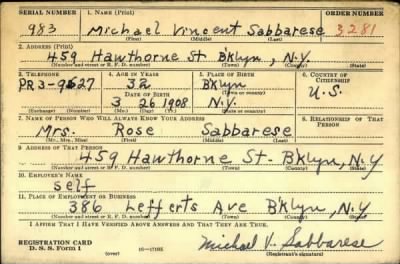 SERIAL NUMBER 1. NAME (Print) ORDER NUMBER
983 Michael Vincent Sabbarese 3281
(First) (Middle) (Last)
2. ADDRESS (Print)
459 Hawthorne St B'klyn, N.Y.
(Number and street or R. F. D. number) (Town) (County) (State)
3. TELEPHONE 4. AGE IN YEARS 5. PLACE OF BIRTH 6. COUNTRY OF CITIZENSHIP
PR 3-9627 32 Bklyn
DATE OF BIRTH (Town or county) U.S.
3 26 1908 N.Y.
(Exchange) (Number) (Mo.) (Day) (Yr.) (State or country)
7. NAME OF PERSON WHO WILL ALWAYS KNOW YOUR ADDRESS 8. RELATIONSHIP OF THAT PERSON
Mrs. Rose Sabbarese
(Mr., Mrs., Miss) (First) (Middle) (Last)
9. ADDRESS OF THAT PERSON
459 Hawthorne St- B'klyn, N.Y
(Number and street or R. F. D. number) (Town) (County) (State)
10. EMPLOYER'S NAME
Self
11. PLACE OF EMPLOYMENT OR BUSINESS
386 Lefferts Ave Bklyn, N.Y
(Number and street or R. F. D. number) (Town) (County) (State)
I AFFIRM THAT I HAVE VERIFIED ABOVE ANSWERS AND THAT THEY ARE TRUE.
REGISTRATION CARD
D. S. S. Form 1 (over) 16—17105 Michael V. Sabbarese
(Registrant's signature)